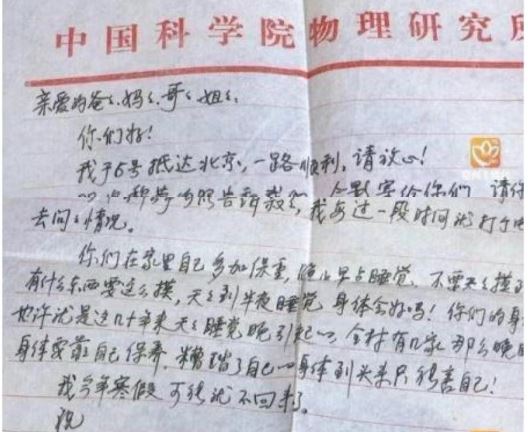 中国科学院物理研究
亲爱的爸爸、妈妈、哥哥、姐姐:
你们好!
我于5号抵达北京,一路顺利,请放心!
告诉我 给你们 请
去问问情况。 我每过一段时间就打个电
你们在家里自己多加保重,晚上早点睡觉,不要天天摸
有什么东西要这么摸,天天到半夜睡觉 身体会好吗!你们的身
也许就是这几十年来天天睡觉晚引起的。全村有几家那么晚
身体要靠自己保养,糟蹋了自己的身体到头来只能害自己!
我今年寒假可能就不回来了。
祝